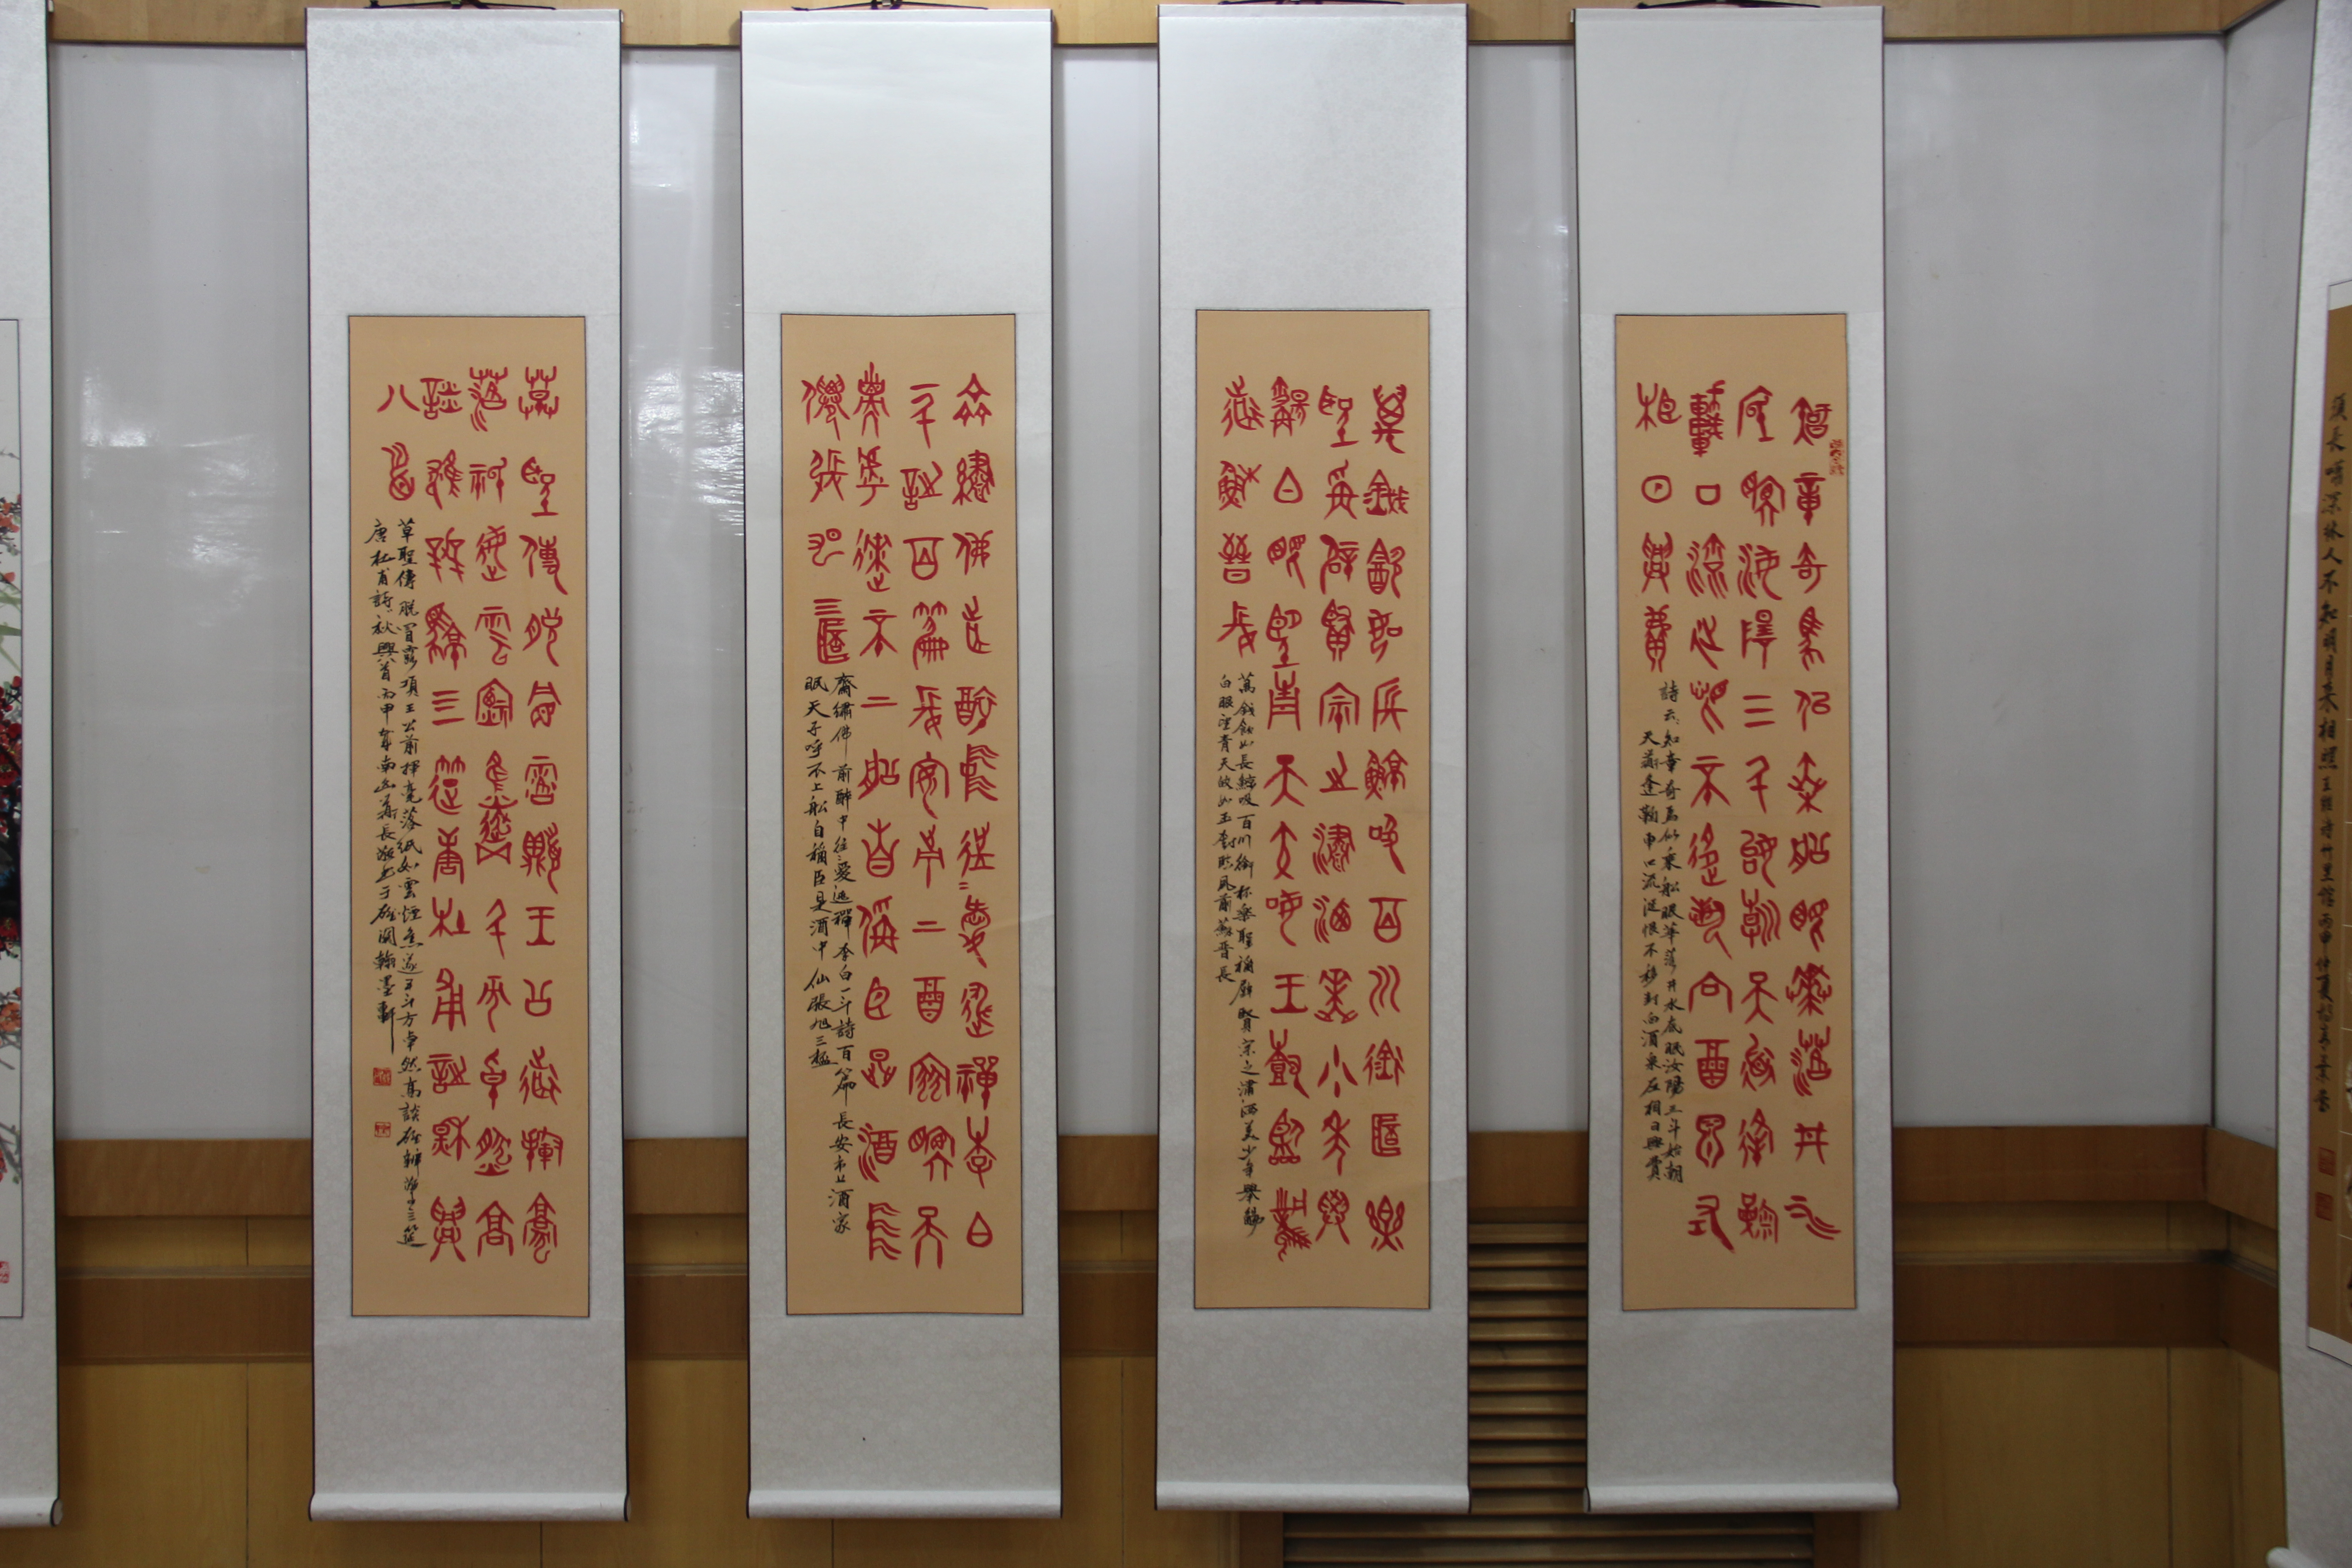 長嘯深林人不知明月來相照王維詩竹里館丙申仲夏
知章奇馬似乘船眼華落井水
底眠汝陽三斗始朝天逢麴
車口流涎恨不移封向酒泉左
相日興費
詩云知章奇馬似乘船眼華落井水底眠汝陽三斗始朝
天道逢麴車口流涎恨不移封向酒泉左相日興費
萬錢飲如長鯨吸百川銜杯樂
聖稱避賢宗之瀟洒美少年舉
觴白眼望青天皎如玉樹臨風
前蘇晉長
萬錢飲如長鯨吸百川銜杯樂聖稱避賢宗之瀟洒美少年舉觴
白眼望青天皎如玉樹臨風前蘇晉長
齋繡佛前醉中往〻愛逃禪李白
一斗詩百篇長安市上酒家眠天
子呼來不上船自稱臣是酒中
仙張旭三杯
齋繡佛前醉中往〻愛逃禪李白一斗詩百篇長安市上酒家
眠天子呼不上船自稱臣是酒中仙張旭三杯
草聖傳脫帽露頂王公前揮毫
落紙如雲煙焦遂五斗方卓然高
談雄辯驚三筵唐杜甫詩秋興
八首
草聖傳脫冒露頂王公前揮毫落紙如雲煙焦遂五斗方卓然高談雄辨驚三筵
唐杜甫詩秋興八首丙申年南于雄関翰墨軒